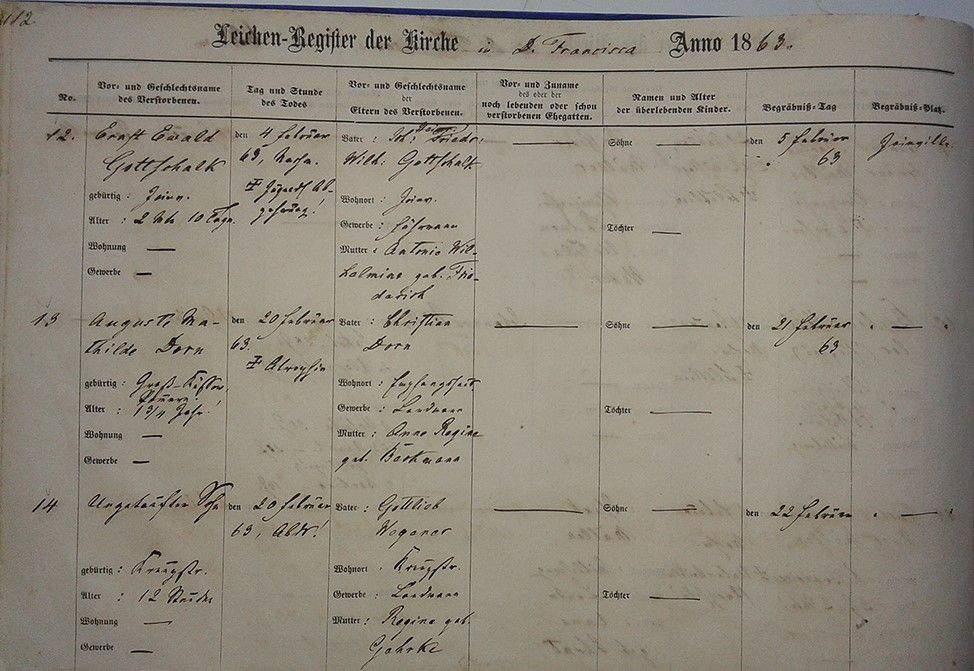 112.
Leichen-Register der Kirche in D. Francisca Anno 1863.
No.
Vor- und Geschlechtsname
des Verstorbenen.
Tag und Stunde
des Todes
Vor- und Geschlechtsname
der
Eltern des Verstorbenen.
Vor- und Zuname
des oder der
noch lebenden oder schon
verstorbenen Ehegatten.
Namen und Alter
der überlebenden Kinder.
Begräbniß-Tag
Begräbniß-Platz.
12.
Ernst Ewald
Gottschalk
gebürtig: Joinv.
Alter: 2 10 Tage.
Wohnung —
Gewerbe —
den 4 Februar
63,
Vater: Joh: Friedr:
Wilh: Gottschalk
Wohnort: Joinv.
Gewerbe: Fuhrmann
Mutter: Antonie Wil-
helmine geb. Frie-
derich
—
Söhne —
Töchter —
den 5 Februar
63
Joinville
13
Auguste Ma-
thilde Dorn
gebürtig: Groß-
Alter: 1 3/4 Jahr!
Wohnung —
Gewerbe —
den 20 Februar
63.
Atrophie
Vater: Christian
Dorn
Wohnort:
Gewerbe: Landmann
Mutter: Anna Regine
geb.
—
Söhne —
Töchter —
den 21 Februar
63
" — "
14
Ungetaufter Sohn
gebürtig:
Alter: 12 Stunden
Wohnung —
Gewerbe —
den 20 Februar
63, Abds!
Vater: Gottlieb
Wegener
Wohnort:
Gewerbe: Landmann
Mutter: Regine geb.
Gehrke
—
Söhne —
Töchter —
den 22 Februar
" — "